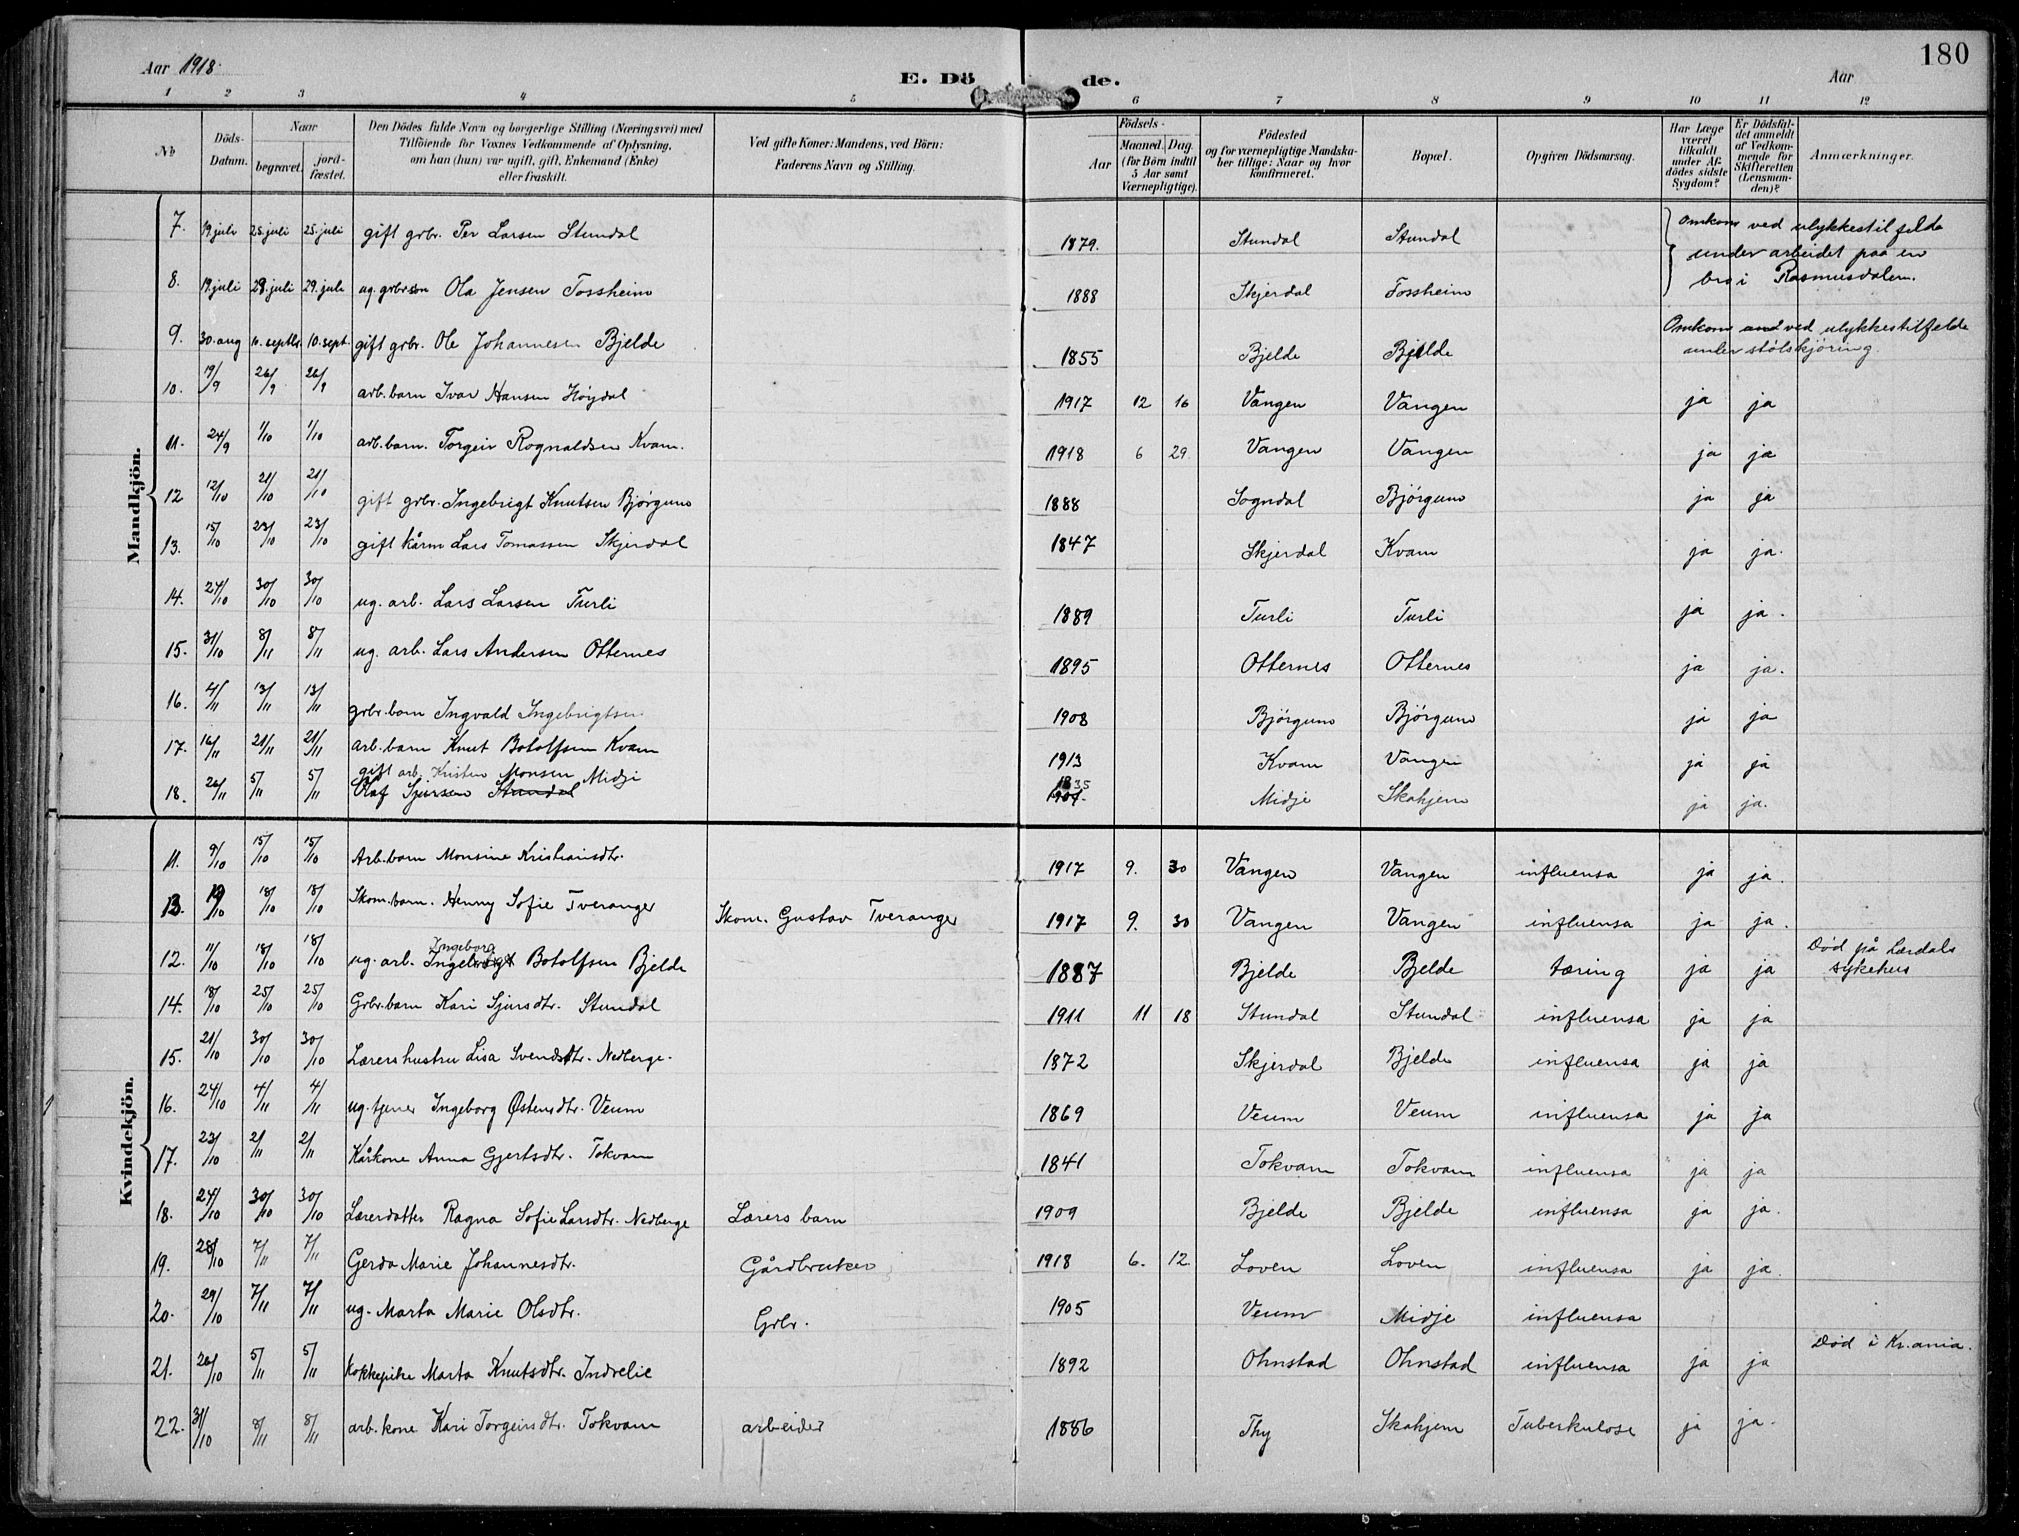 Aar 1918.
E. Dö de.
Aar
180
1 2 3 4 5 6 7 8 9 10 11 12
No
Döds-Datum.
Naar
begravet.
jord-fæstet.
Den Dödes fulde Navn og borgerlige Stilling (Næringsvei) med
Tilföiende for Voxnes Vedkommende af Oplysning,
om han (hun) var ugift, gift, Enkemand (Enke)
eller fraskilt.
Ved gifte Koner: Mandens, ved Börn:
Faderens Navn og Stilling.
Födsels-
Aar
Maaned.
Dag.
(for Börn indtil
5 Aar samt
Værnepligtige).
Födested
og for værnepligtige Mandska-
ber tillige: Naar og hvor
konfirmeret.
Bopæl.
Opgiven Dödsaarsag.
Har Læge
været
tilkaldt
under Af-
dödes sidste
Sygdom?
Er Dödsfal-
det anmeldt
af Vedkom-
mende for
Skifteretten
(Lensman-
den)?
Anmærkninger.
Mandkjön.
7. 19 juli 25. juli 25. juli gift grbr. Per Larsen Stundal 1879. Stundal Stundal Omkom ved ulykkestilfelde
under arbeidet paa en
bro i Rasmusdalen.
8. 19. juli 29. juli 29. juli ug. grbr.søn Ola Jensen Fossheim 1888 Skjerdal Fossheim
9. 30. aug 10. septbr. 10. sept. gift grbr. Ole Johannesen Bjelde 1855 Bjelde Bjelde Omkom ved ulykkestilfelde
under stølskjøring.
10. 19/9 26/9 26/9 arb. barn Ivar Hansen Høydal 1917 12 16 Vangen Vangen ja ja
11. 24/9 1/10 1/10 arb. barn. Torgeir Rognaldsen Kvam. 1918 6 29 Vangen Vangen ja ja
12 12/10 21/10 21/10 gift grbr. Ingebrigt Knutsen Bjørgum 1888 Sogndal Bjórgum ja ja
13. 15/10 23/10 23/10 gift kårm Lars Tomassen Skjerdal 1847 Skjerdal Kvam ja ja.
14. 24/10 30/10 30/10 ug. arb. Lars Larsen Turli 1889 Turli Turli ja ja.
15. 31/10 8/11 8/11 ug. arb. Lars Andersen Otternes 1895 Otternes Otternes ja ja.
16. 4/11 13/11 13/11 grbr. barn Ingvald Ingebrigtsen 1908 Bjórgum Bjórgum ja ja
17. 16/11 21/11 21/11 arb. barn Knut Botolfsen Kvam 1913 Kvam Vangen ja ja
gift arb. Kristen Monsen Midji
18. 26/11 5/11 5/11 Olaf Sjursen Stundal 1835 Midje Skahjem ja ja.
Kvindekjön.
11. 9/10 15/10 15/10 Arb. barn Monsine Kristiansdtr. 1917 9. 30 Vangen Vangen influensa ja ja.
13. 19/10 18/10 18/10 Skom. barn. Henny Sofie Tveranger Skom. Gustav Tveranger 1917 9. 30 Vangen Vangen influensa ja ja.
12. 11/10 18/10 18/10 ug. arb. Ingeborg Botolfsen Bjelde 1887 Bjelde Bjelde tæring ja ja Død på Lærdals
sykehus
14. 18/10 25/10 25/10 Grbr. barn Kari Sjursdtr. Stundal 1911 11 18 Stundal Stundal influensa ja ja
15. 21/10 30/10 30/10 Lærershustru Lisa Svendsdtr. Nedberge. 1872 Skjerdal Bjelde influensa ja ja
16. 24/10 4/11 4/11 ug. tjener Ingeborg Østensdtr. Veum 1869 Veum Veum influensa ja ja
17. 23/10 2/11 2/11 Kårkone Anna Gjertsdtr. Tokvam 1841 Tokvam Tokvam influensa ja ja
18. 24/10 30/10 30/10 Lærerdatter Ragna Sofie Larsdtr. Nedberge Lærers barn 1909 Bjelde Bjelde influensa ja ja.
19. 28/10 7/11 7/11 Gerda Marie Johannesdtr. Gårdbruker 1918 6. 12. Loven Loven influensa ja ja.
20. 29/10 7/11 7/11 ug. Marta Marie Olsdtr. Grbr. 1905 Veum Midje influensa
21. 26/10 5/11 5/11 Kokkepike Marta Knutsdtr. Indrelie 1892 Ohnstad Ohnstad influensa ja ja Død i Kr.ania.
22. 31/10 8/11 8/11 arb. kone Kari Torgeirsdtr. Tokvam arbeider 1886 Thy Skahjem Tuberkulose ja ja.